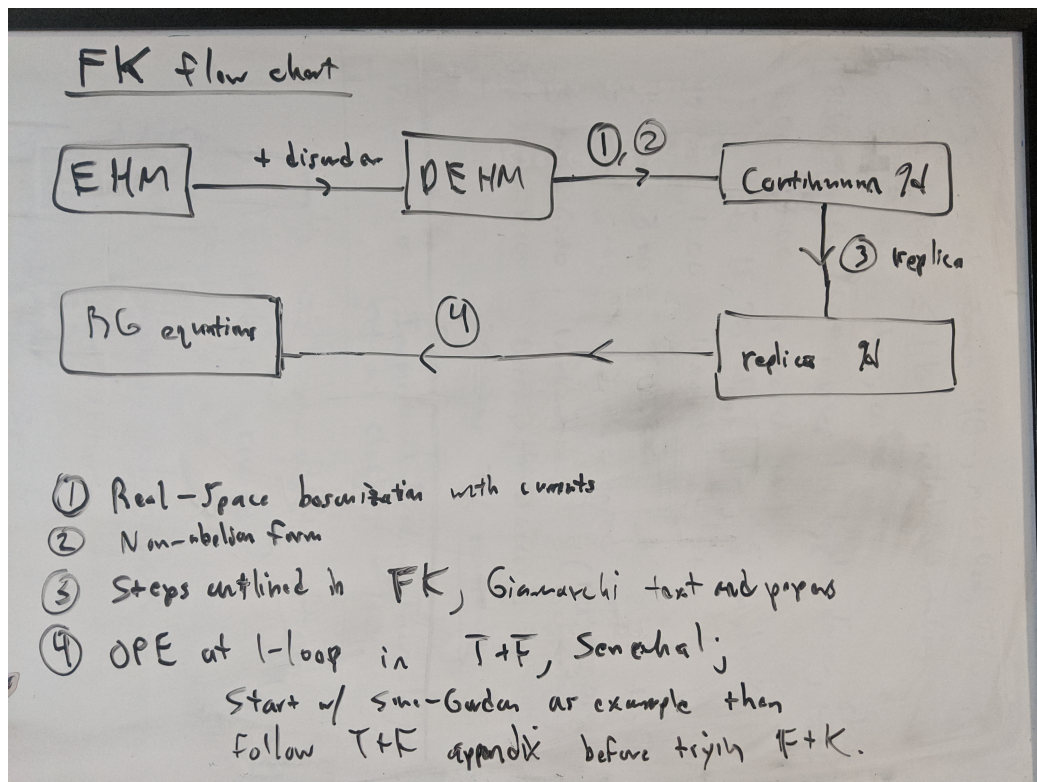 FK flow chart
EHM
+ disorder
DEHM
①, ②
Continuum ℋ
③ replica
RG equations
④
replica ℋ
① Real-space bosonization with currents
② Non-abelian form
③ Steps outlined in FK, Giamarchi text and papers
④ OPE at 1-loop in T+F, Senechal;
Start w/ sine-Gordon as example then
follow T+F appendix before tryin F+K.